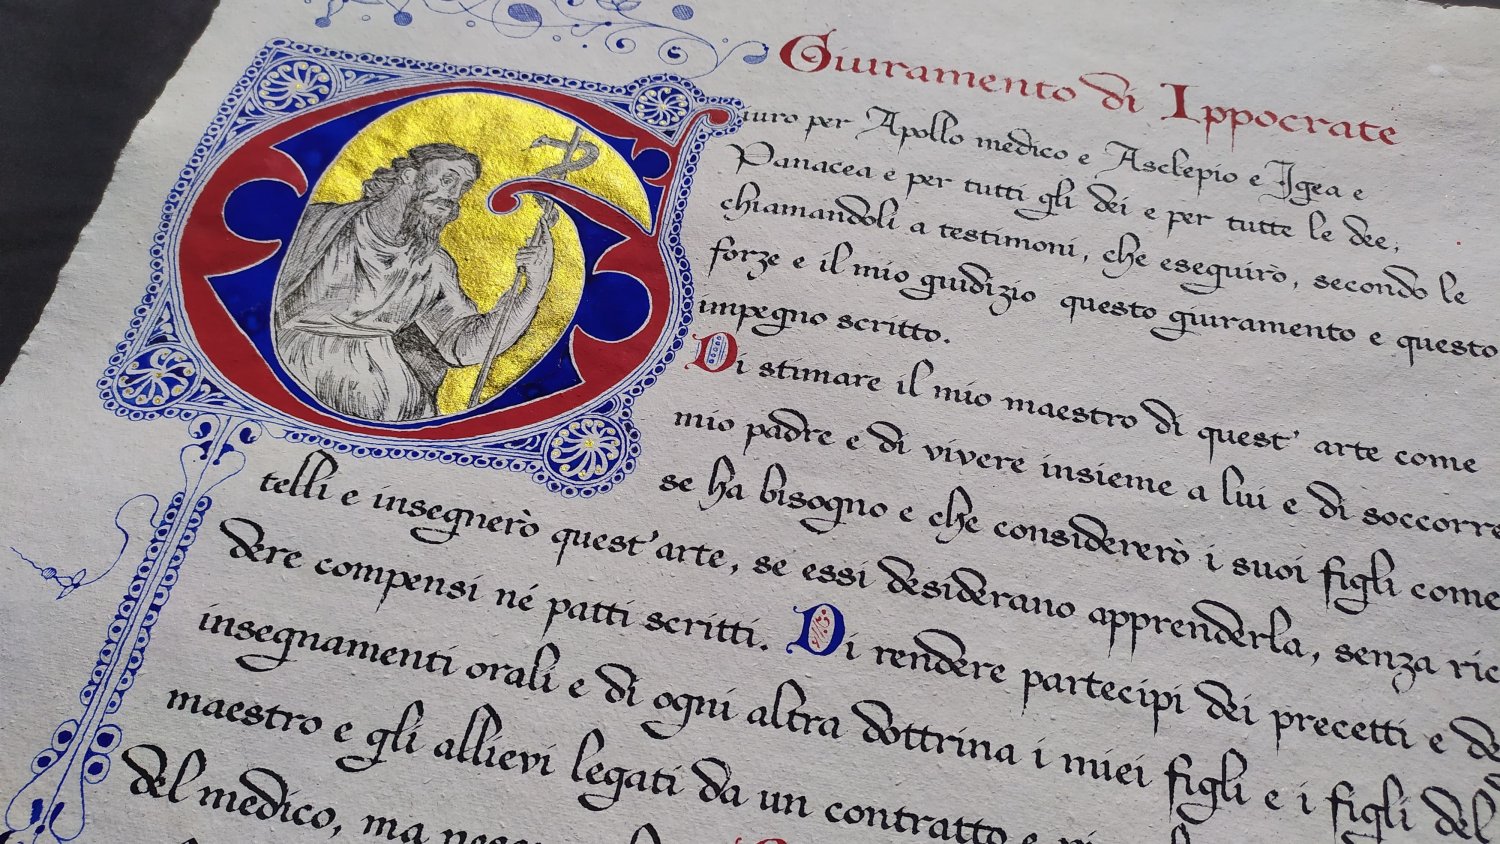 Giuramento di Ippocrate
Giuro per Apollo medico e Asclepio e Igea e
Panacea e per tutti gli dei e per tutte le dee,
chiamandoli a testimoni, che eseguirò, secondo le
forze e il mio giudizio questo giuramento e questo
impegno scritto.
Di stimare il mio maestro di quest' arte come
mio padre e di vivere insieme a lui e di soccorre
se ha bisogno e che considererò i suoi figli come
telli e insegnerò quest'arte, se essi desiderano apprenderla, senza ric
dere compensi né patti scritti. Di rendere partecipi dei precetti e de
insegnamenti orali e di ogni altra dottrina i miei figli e i figli del
maestro e gli allievi legati da un contratto e
del medico, ma